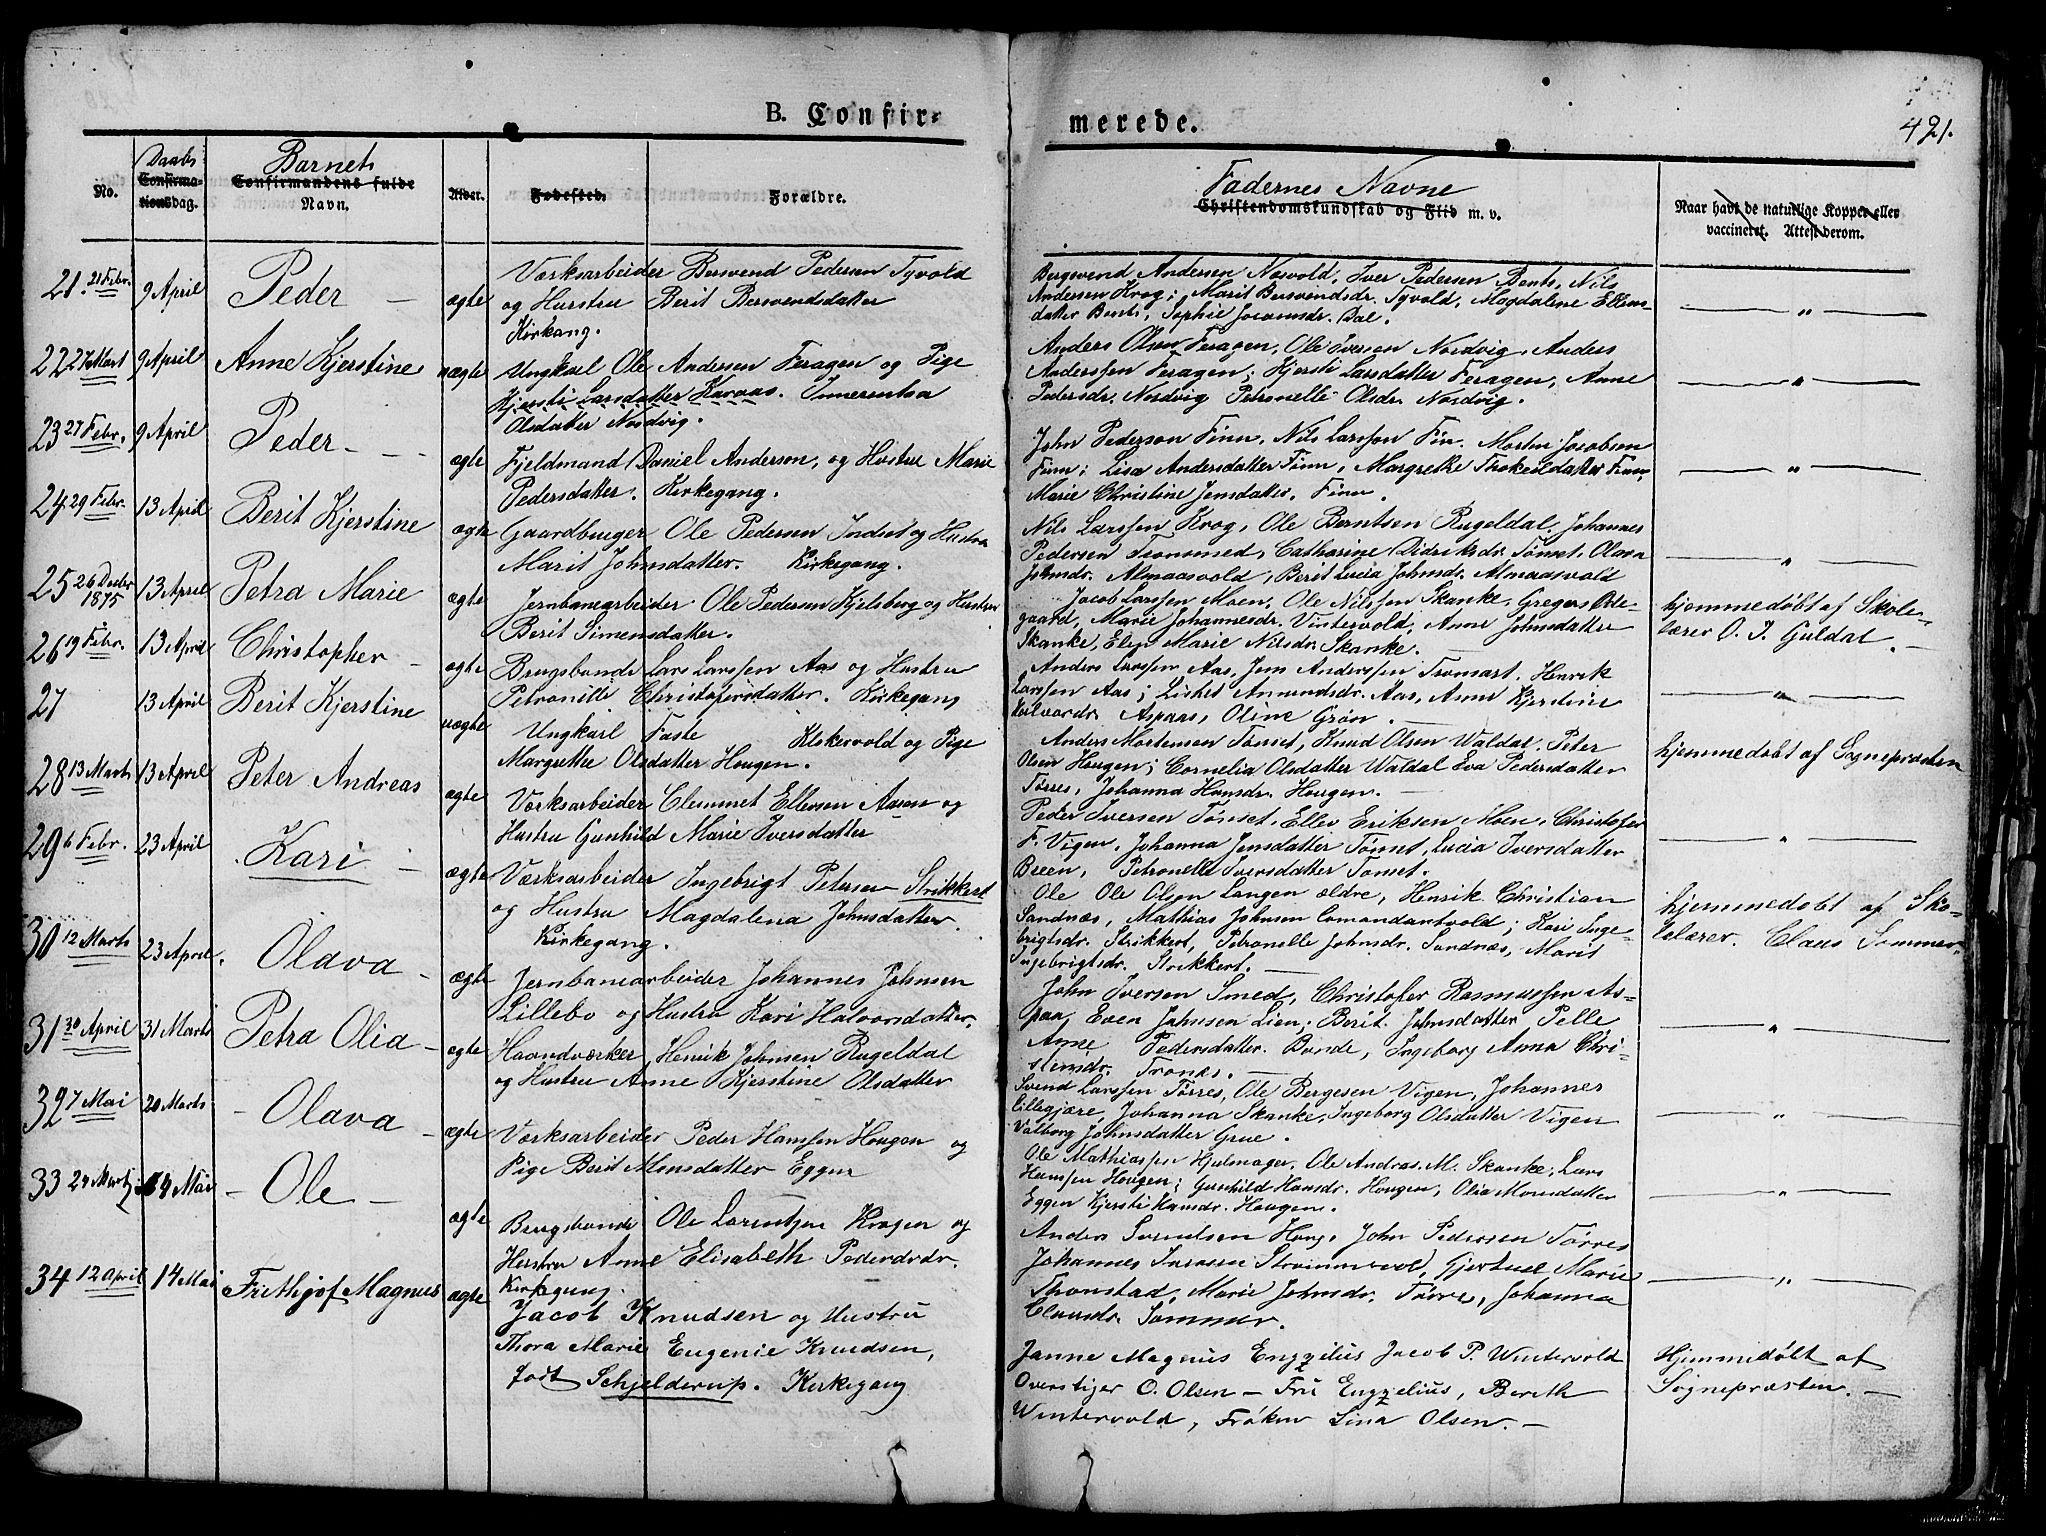 B. Confir-
merede.
421.
No.
Daabs
Confirma-
tionsdag.
Barnets
Confirmandens fulde
Navn.
Alder.
Fødested.
Forældre.
Fadernes Navne
Christendomskundskab og Flid m. v.
Naar havt de naturlige Kopper eller
vaccineret. Attest derom.
21. 21 Febr. 9 April Peder — ægte Værksarbeider Bersvend Pedersen Tyvold
og Hustru Berit Bersvendsdatter
Kirkgang.
Bergsvend Andersen Nosvold, Iver Pedersen Bents, Nils
Andersen Krog; Marit Bersvendsdr. Tyvold, Magdalene Ellens-
datter Bents, Sophie Dal.
— " —
22 27 Mart 9 April Anne Kjerstine uægte Ungkarl Ole Andersen Feragen og Pige
Kjersti Larsdatter Havaas.
Olsdatter Nordvig.
Anders Olsen Feragen, Ole Iversen Nordvig, Anders
Anderssen Feragen; Kjersti Larsdatter Feragen, Anne
Pedersdr. Nordvig Petronelle Olsdr. Nordvig.
— " —
23 27 Febr. 9 April Peder - - - ægte Fjeldmand Daniel Anderson, og Hustru Marie
Pedersdatter. Kirkegang.
John Pederson Finn, Nils Larssen Fin. Morten Jacobsen
Finn; Lisa Andersdatter Finn, Margrethe Finn,
Marie Christine Jensdatter. Finn.
— " —
24 29 Febr. 13 April Berit Kjerstine ægte Gaardbruger Ole Pedersen Indset og Hustru
Marit Johnsdatter. Kirkegang.
Nils Larssen Krog, Ole Berntsen Rugeldal, Johannes
Pedersen Catharine Didriksdr. Tønset, Olava
Johnsdr. Almaasvold, Berit Lucia Johnsdr. Almaasvold
— " —
25 26 Decbr 1875 13 April Petra Marie ægte Jernbanearbeider Ole Pedersen Kjelsberg og Hustru
Berit Simensdatter.
Jacob Larssen Moen, Ole Nilssen Skanke, Gregers Øde-
gaard, Marie Johannesdr. Vintervold, Anne Johnsdatter
Skanke, Elen Marie Nilsdr. Skanke.
hjemmedøbt af Skole-
lærer O. J. Guldal.
26 19 Febr. 13 April Christopher — ægte Brugsbonde Lars Larssen Aas og Hustru
Petronille Christofersdatter. Kirkegang
Anders Larssen Aas, Jens Anderssen Tromsart, Henrik
Larssen Aas; Lisbet Amundsdr. Aas, Anne Kjerstine
Halvordr. Aspaas, Oline Grøn.
— " —
27 13 April Berit Kjerstine uægte Ungkarl Faste Kliskervold og Pige
Margrethe Olsdatter Hougen.
Anders Mortensen Tønset, Knud Olsen Waldal, Peter
Olsen Hougen; Cornelia Olsdatter Waldal Eva Pedersdatter
Tørres, Johanna Hansdr. Hougen.
hjemmedøbt af Sognepræsten
28 13 Marts 13 April Peter Andreas ægte Værksarbeider Clemmet Ellevsen Aasen og
Hustru Gunhild Marie Iversdatter
Peder Iversen Tønset, Ellev Eriksen Moen, Christofer
F. Vigen, Johanna Jensdatter Tønset, Lucia Iversdatter
Breen, Petronelle Iversdatter Tønset.
— " —
29 6 Febr. 23 April Kari — ægte Værksarbeider Ingebrigt Petersen Strikkert
og Hustru Magdalena Johnsdatter.
Kirkegang.
Ole Ole Olsen Langen ældre, Henrik Christian
Sandnæs, Mathias Johnsen Comandantvold; Kari Inge-
brigtsdr. Strikkert, Petronelle Johnsdr. Sandnæs, Marit
Ingebrigtsdr. Strikkert.
hjemmedøbt af Sko-
lelærer. Claus Sommer.
30 12 Marts 23 April. Olava — ægte Jernbanearbeider Johannes Johnsen
Lillebo og Hustru Kari Halvorsdatter.
John Iversen Smed, Christofer Rasmussen As-
paa, Even Johnsen Lien; Berit Johnsdatter Pelle
Anne Pedersdatter. Bonde, Ingeborg Anna Chri-
stensdr. Trones.
— " —
31 30 April 31 Marts Petra Olia — ægte Haandværker Henrik Johnsen Rugeldal
og Hustru Anne Kjerstine Olsdatter
Svend Larssen Tørres, Ole Bergesen Vigen, Johannes
Lillegjære, Johanna Skanke, Ingeborg Olsdatter Vigen
Valborg Johnsdatter Grue.
— " —
32 7 Mai 20 Marts — Olava — ægte Værksarbeider Peder Hanssen Hougen og
Pige Berit Monsdatter Eggen
Ole Mathiassen Hjulmager, Ole Andras. M. Skanke, Lars
Hanssen Hougen; Gunhild Hansdr. Hougen, Olia Monsdatter
Eggen Kjersti Hansdr. Hougen.
— " —
33 24 Marts 14 Mai — Ole — ægte Brugsbonde Ole Krogen og
Hustru Anne Elisabeth Pedersdr.
Kirkegang.
Anders Svendsen Houg, John Pedersen Tørres
Johannes Strømmevold, Gjertrud Marie
Thonstad, Marie Johnsdr. Tørres, Johanna
Clausdr. Sommer.
— " —
34 12 April 14 Mai Frithjof Magnus ægte Jacob Knudsen og Hustru
Thora Marie Eugenie Knudsen,
født Schjelderup. Kirkegang
Janne Magnus Engzelius Jacob P. Wintervold
Overstiger O. Olsen — Fru Engzelius, Bereth
Wintervold, Frøken Lina Olsen. —
Hjemmedøbt af
Sognepræsten. —